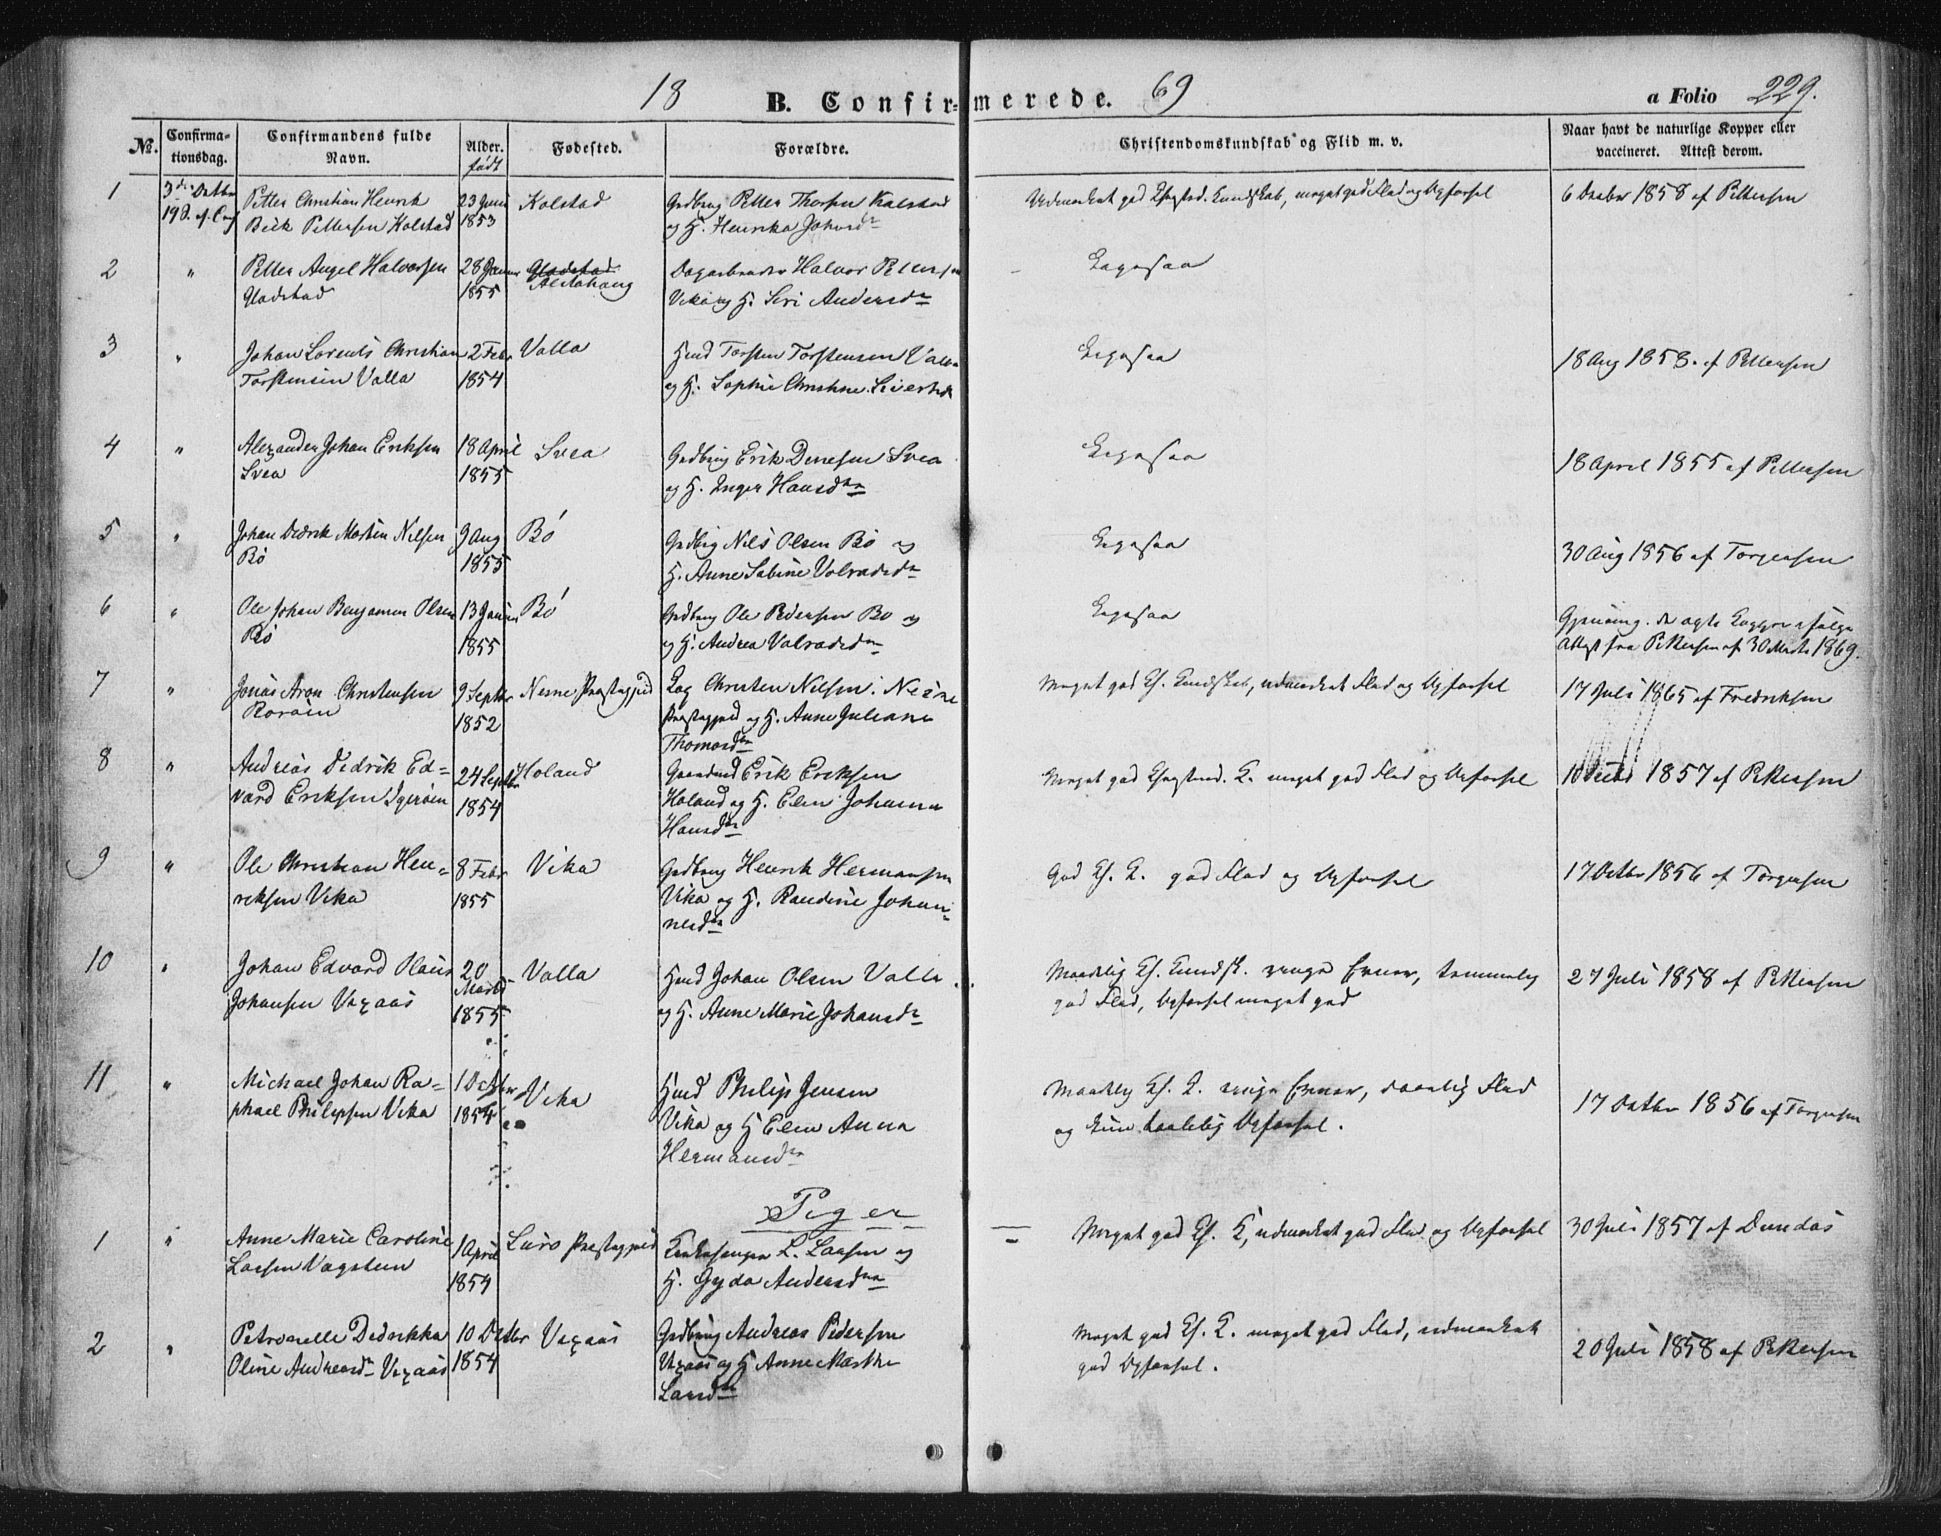 18 B. Confirmerede. 69 a Folio 229.
No. Confirmationsdag. Confirmandens fulde Navn. Alder. født Fødested. Forældre. Christendomskundskab og Flid m. v. Naar havt de naturlige Kopper eller vaccineret. Attest derom.
1 3die Octbr Petter Christian Henrik 23 Juni Kolstad Gaardbrug Petter Thorsen Kolstad Udmærket god Chrstd. Kundskab, meget god Flid og Opførsel 6 Decbr 1858 af Pettersen
19 S. ef. Petters Kolstad 1853 og H. Henrika Johnsdr
2 " Petter Angel Halvorsen 28 Januar Gladstad Alstahoug Halvor Petersen Ligesaa
Gladstad 1855 Vika og H. Siri Andersdr
3 " Johan Lorents Christian 2 Febr Valla Hmd Torsten Torstensen Valla Ligesaa 18 Aug 1858. af Pettersen
Torstensen Valla 1854 og H. Sophie Christine Sivertsdr
4 " Alexander Johan Eriksen 18 April Svea Grdbrug Erik Denesen Svea Ligesaa 18 April 1855 af Pettersen
Svea 1855 og H. Inger Hansdtr
5 " Johan Didrik Martin Nilsen 9 Aug Bø Grdbrg Nils Olsen Bø og Ligesaa 30 Aug 1856 af Torgersen
Bø 1855 H. Anne Sabine Volradsdr
6 " Ole Johan Benjamin Olsen 13 Januar Bø Grdbrug Ole Pedersen Bø og Ligesaa Gjennemg. de ægte Kopper ifølge
Bø 1855 og H. Andrea Valradsdtr Attest fra Pettersen af 30 Marts 1869.
7 " Jonas Aron Christensen 9 Septbr Nesne Præstegjeld Christen Nilsen. Nesne Meget god Ch. Kundskab, udmærket Flid og Opførsel 17 Juli 1865 af Fredriksen
Rorøen 1852 Præstegjeld og H. Anne Juliane
Thomasdtr
8 " Andreas Didrik Ed= 24 Septbr Holand Gaardmd Erik Eriksen Meget god Chrstend. K. meget god Flid og Opførsel 1857 af Pettersen
vard Eriksen Igerøen 1854 Holand og H. Elen Johanna
Hansdtr
9 " Ole Christian Hen= 8 Febr Vika Grdbrug Henrik Hermansen God Ch. K. god Flid og Opførsel 17 Octbr 1856 af Torgersen
riksen Vika 1855 Vika og H. Randine Johan=
nesdtr
10 " Johan Edvard Olaus 20 Marts Valla Hmd Johan Olsen Valla Maadelig Ch. Kundsk. ringe Evner, temmelig 27 Juli 1858 af Pettersen
Johansen Vexaas 1855 og H. Anne Marie Johansdr god Flid, Opførsel meget god
11 " Michael Johan Ra= 1 Octbr Vika Hmd Philip Jensen Maadelig Ch. K. ringe Evner, daarlig Flid 17 Octbr 1856 af Torgersen
phael Philipsen Vika 1854 Vika og H Elen Anna og kun taalelig Opførsel.
Hermansdtr
Piger
1 " Anne Marie Caroline 1 April Lurø Præstegjeld Kirkesanger L. Larsen og Meget god Ch. K, udmærket god Flid og Opførsel 30 Juli 1857 af Dundas
Larsen Vagsteen 1854 H. Gyda Andersdtr
2 " Petronelle Didrikka 10 Octbr Vexaas Grdbrug Andreas Pedersen Meget god Ch. K. meget god Flid, udmærket 20 Juli 1858 af Pettersen
Oline Andreasdr Vexaas 1854 Vexaas og H Anne Marthe god Opførsel.
Larsdtr